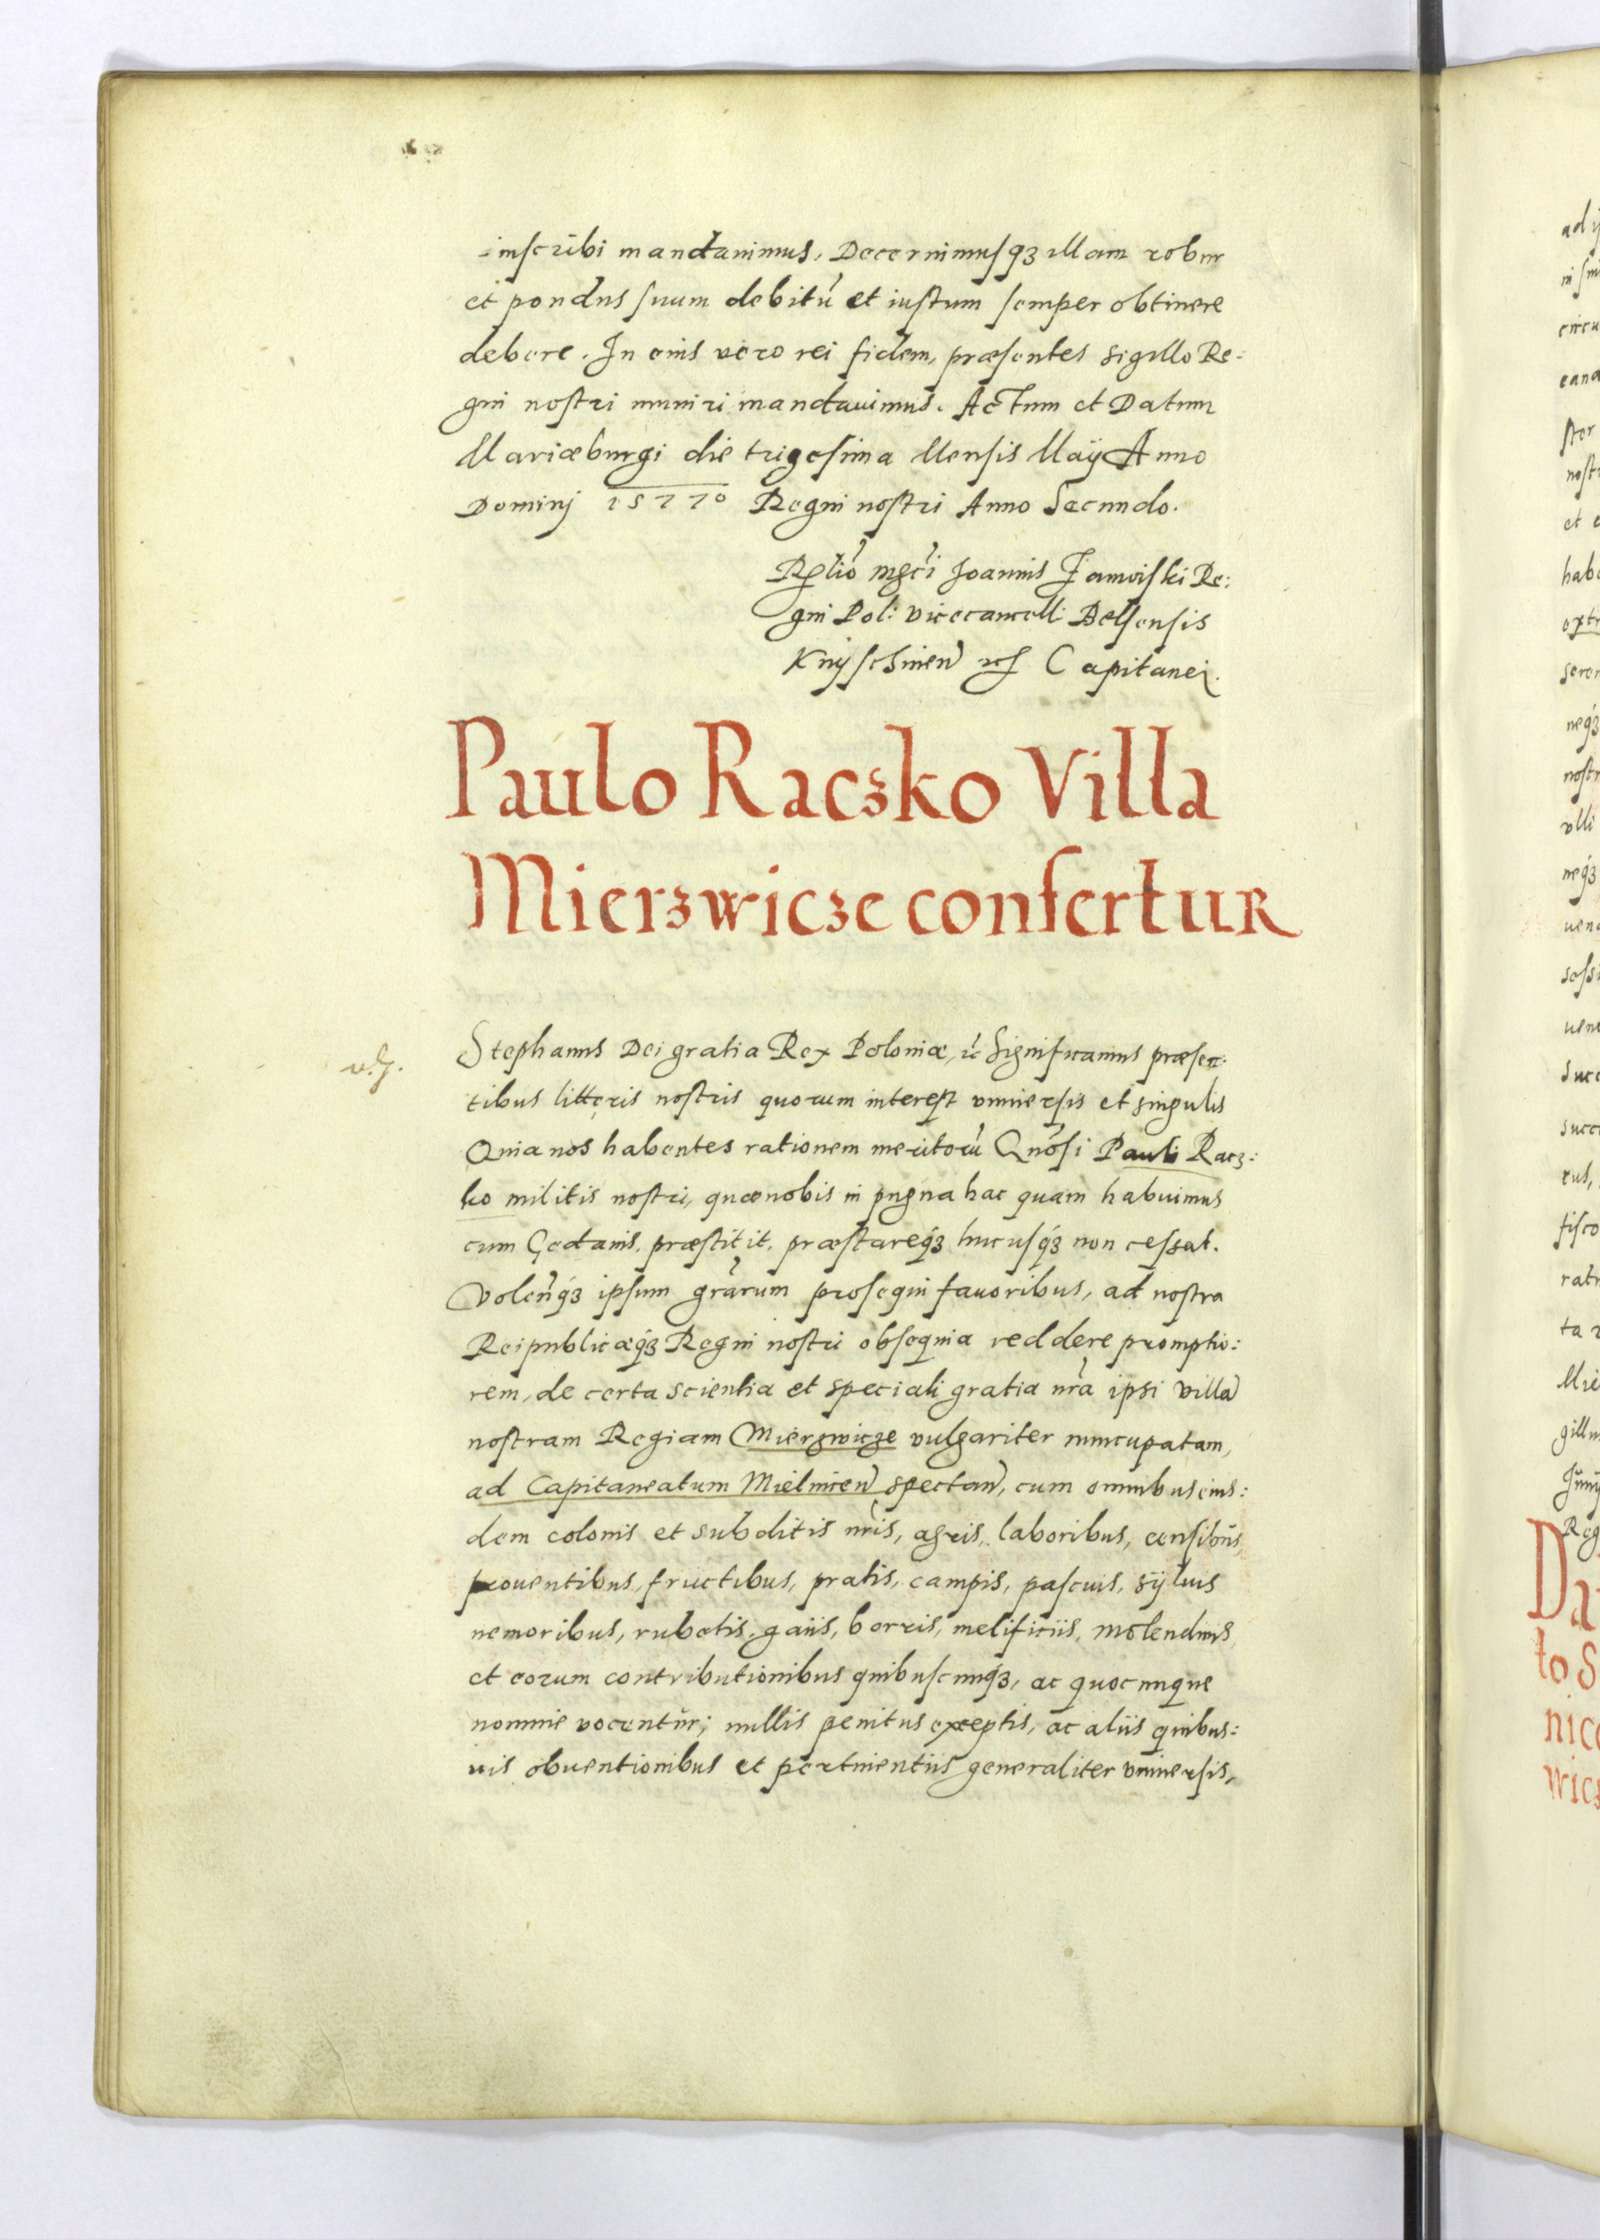 inscribi mandauimus. Decernimusq3 illam robur
et pondus suum debitũ et iustum semper obtinere
debere. In cuius vero rei fidem, præsentes sigillo Re:
gni nostri muniri mandauimus. Actum et Datum
Mariæburgi die trigesima Mensis Maÿ Anno
Dominj 1577º Regni nostri Anno Secundo.
Rẽlio mg̃ci Joannis Zamoiski Re:
gni Pol: vicecancell: Belsensis
Knÿschinen̄ Capitanei.
Paulo Raczko Villa
Mierzwicze confertur
Stephanus Dei gratia Rex Poloniæ, ꝛc Significamus præsen:
tibus litteris nostris quorum interest vniuersis et singulis
Quia nos habentes rationem meritorũ Gñosi Pauli Racz:
ko militis nostri, quæ nobis in pugna hac quam habuimus
cum Gedanis, præstitit, præstareq3 hucusq3 non cessat.
Volen̄q3 ipsum gr̃arum prosequi fauoribus, ad nostra
Reipublicæq3 Regni nostri obsequia reddere promptio:
rem, de certa scientia et speciali gratia nr̃a ipsi villã
nostram Regiam Mierzwicze vulgariter nuncupatam,
ad Capitaneatum Mielnicen̄ spectan̄, cum omnibus eius:
dem colonis et subditis nr̃is, agris, laboribus, censibus,
prouentibus, fructibus, pratis, campis, pascuis, sÿluis
nemoribus, rubetis, gaiis, borris, melificiis, molendinis
et eorum contributionibus quibuscunq3, ac quocunque
nomine vocentur; nullis penitus exceptis, ac aliis quibus:
uis obuentionibus et pertinentiis generaliter vniuersis,